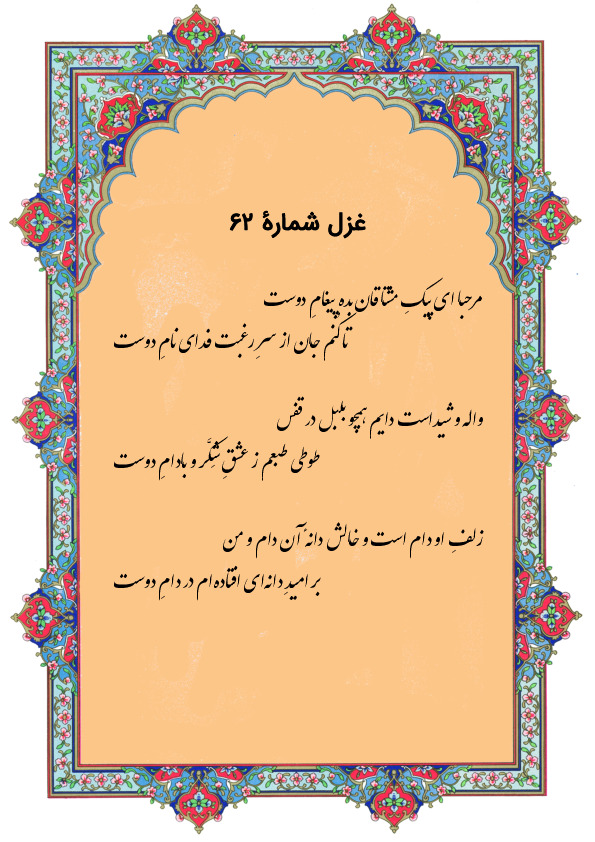 غزل شمارهٔ ۶۲
مرحبا ای پیکِ مشتاقان بده پیغامِ دوست
تا کنم جان از سرِ رغبت فدای نامِ دوست
واله و شیداست دایم همچو بلبل در قفس
طوطی طبعم ز عشقِ شِکَّر و بادامِ دوست
زلفِ او دام است و خالش دانهٔ آن دام و من
بر امیدِ دانه‌ای افتاده‌ام در دامِ دوست